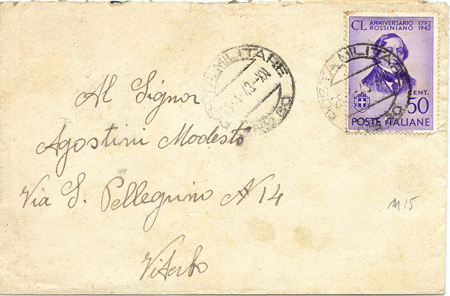 CL ANNIVERSARIO 1792
ROSSINIANO 1942
CENT. 50
POSTE ITALIANE
POSTA MILITARE
POSTA MILITARE
Al Signor
Agostini Modesto
Via S. Pellegrino N 14
Viterbo
M15